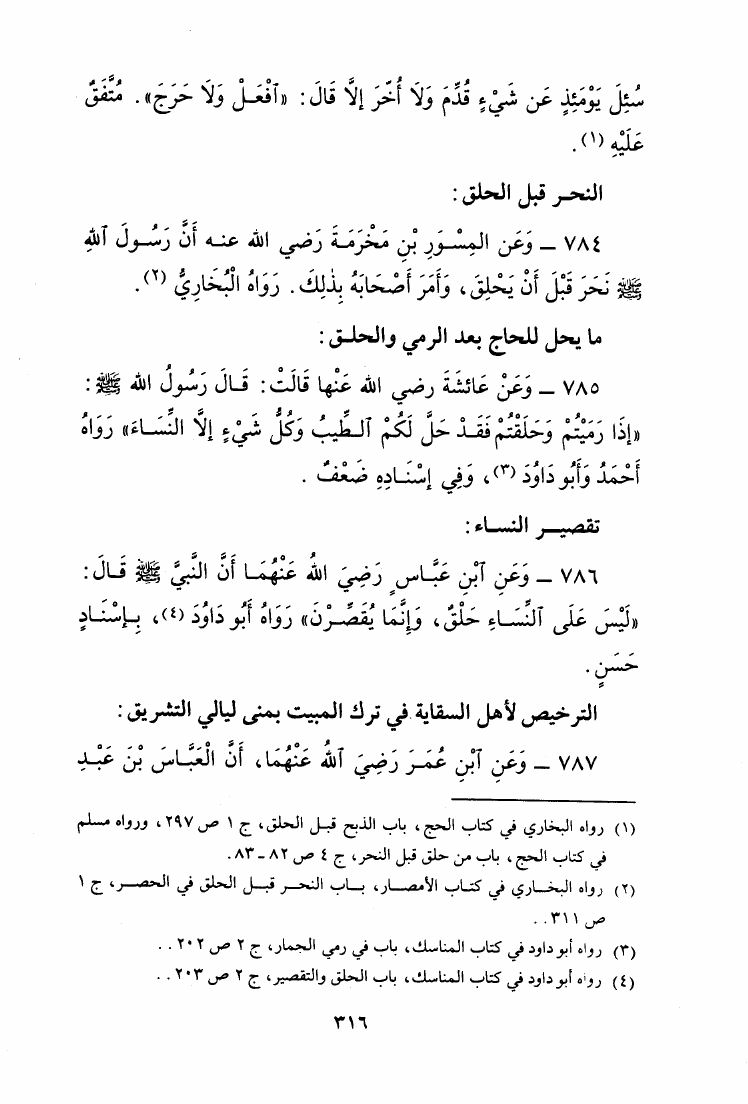 سُئِلَ يَوْمَئِذٍ عَن شَيْءٍ قُدِّمَ وَلَا أُخِّرَ إلَّا قَالَ: «ٱفْعَـلْ وَلَا حَرَجَ». مُتَّفَقٌ
عَلَيْهِ (١).
النحـر قبل الحلق:
٧٨٤ ــ وَعَن المِسْـوَرِ بْنِ مَخْرَمَـةَ رَضي الله عنـه أَنَّ رَسُـولَ ٱللهِ
ﷺ نَحَرَ قَبْلَ أَنْ يَحْلِقَ، وَأَمَرَ أَصْحَابَهُ بِذٰلِكَ. رَوَاهُ الْبُخَارِيُّ (٢).
ما يحل للحاج بعد الرمي والحلـق:
٧٨٥ ــ وَعَنْ عَائشَةَ رضي الله عَنْها قَالَتْ: قَـالَ رَسُولُ الله ﷺ:
«إذَا رَمَيْتُمْ وَحَلَقْتُمْ فَقَـدْ حَلَّ لَكُمْ الـطِّيبُ وَكُلُّ شَيْءٍ إلَّا النِّسَـاءَ» رَوَاهُ
أَحْمَدُ وَأَبُو دَاوُدَ (٣)، وَفِي إسْنَـادِهِ ضَعْفٌ.
تقصيــر النسـاء:
٧٨٦ ــ وَعَنِ ٱبْنِ عَبَّـاسٍ رَضِيَ اللهُ عَنْهُمَـا أَنَّ النَّبِيَّ ﷺ قَـالَ:
«لَيْسَ عَلَى ٱلنِّسَـاءِ حَلْقٌ، وَإِنَّمَا يُقَصِّـرْنَ» رَوَاهُ أَبُو دَاوُدَ (٤)، بِـإسْنَـادٍ
حَسَنٍ.
الترخيص لأهل السقاية في ترك المبيت بمنى ليالي التشريق:
٧٨٧ ــ وَعَنِ ٱبْنِ عُمَـرَ رَضِيَ ٱللهُ عَنْهُمَا، أَنَّ الْعَبَّاسَ بْنَ عَبْـدِ
(١) رواه البخاري في كتاب الحج، باب الذبح قبـل الحلق، ج ١ ص ٢٩٧، ورواه مسلم
في كتاب الحج، باب من حلق قبل النحر، ج ٤ ص ٨٢ ـ ٨٣.
(٢) رواه البخـاري في كتـاب الأمصـار، بــاب النحـر قبـل الحلق في الحصـر، ج ١
ص ٣١١. .
(٣) رواه أبو داود في كتاب المناسك، باب في رمي الجمار، ج ٢ ص ٢٠٢. .
(٤) رواه أبو داود في كتاب المناسك، باب الحلق والتقصير، ج ٢ ص ٢٠٣. .
٣١٦